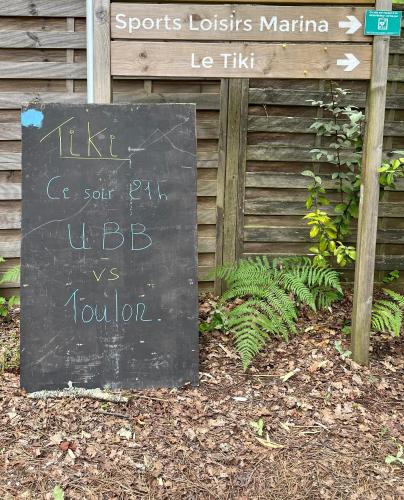 Sports Loisirs Marina
Le Tiki
Tiki
Ce soir 21h
UBB
vs
Toulon.